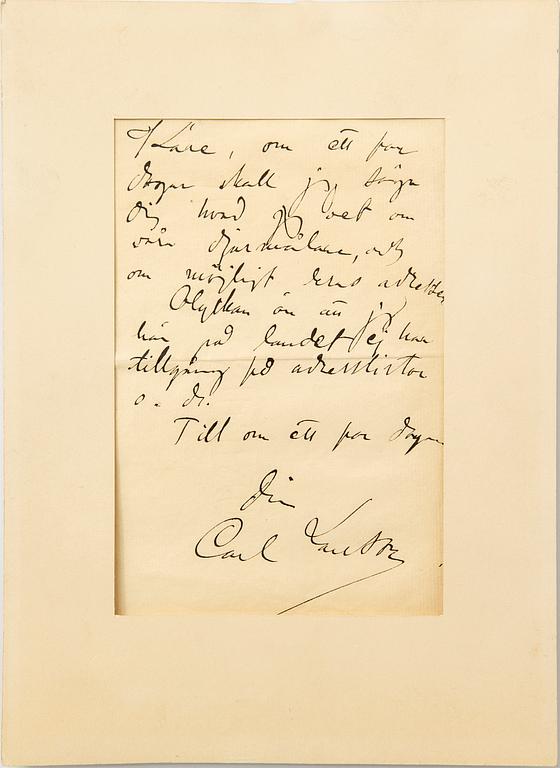 Käre, om ett par
dagar skall jag säga
dig hvad jag vet om
våra djurmålare, och
om möjligt deras adresser
Olyckan är att jag
här på landet ej har
tillgång på adresslistor
o. d.
Till om ett par dagar
din
Carl Larsson